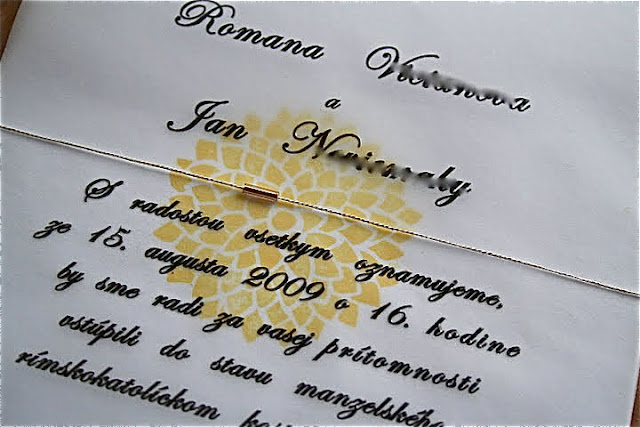 Romana
a
Jan
S radostou vsetkym oznamujeme,
ze 15. augusta 2009 o 16. hodine
by sme radi za vasej prítomnosti
vstúpili do stavu manzelského
rímskokatolíckom